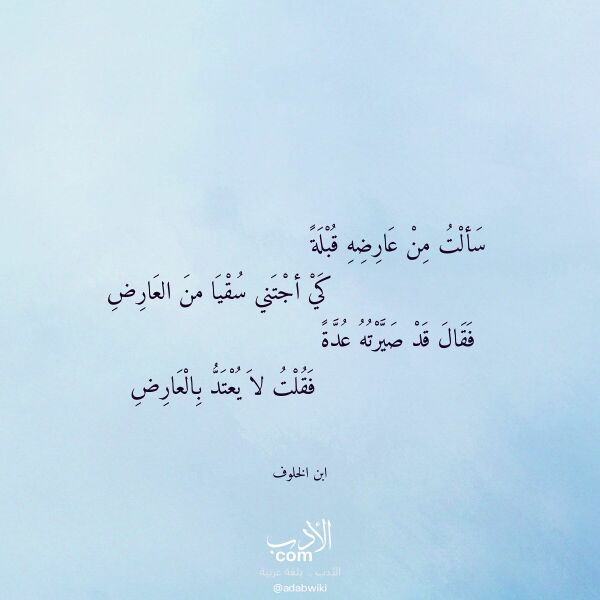 سَألْتُ مِنْ عَارِضِهِ قُبْلَةً
كَيْ أجْتَني سُقْيَا منَ العَارِضِ
فَقَالَ قَدْ صَيَّرْتُهُ عُدَّةً
فَقُلْتُ لاَ يُعْتَدُّ بِالْعَارِضِ
ابن الخلوف
الأدب
com
الأدب .. بلغة عربية
@adabwiki